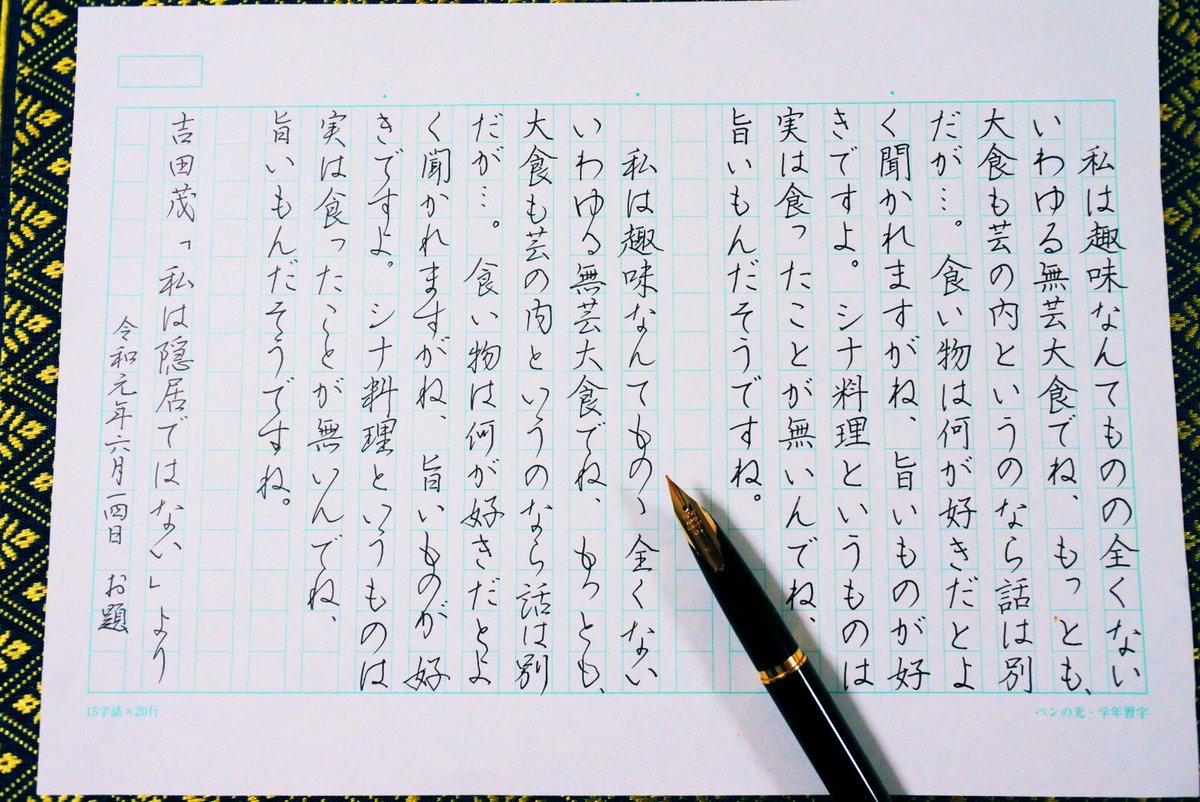 私は趣味なんてものの全くない
いわゆる無芸大食でね、もっとも、
大食も芸の内というのなら話は別
だが…。食い物は何が好きだとよ
く聞かれますがね、旨いものが好
きですよ。シナ料理というものは
実は食ったことが無いんでね、
旨いもんだそうですね。
私は趣味なんてものゝ全くない
いわゆる無芸大食でね、もっとも、
大食も芸の内というのなら話は別
だが…。食い物は何が好きだとよ
く聞かれますがね、旨いものが好
きですよ。シナ料理というものは
実は食ったことが無いんでね、
旨いもんだそうですね。
吉田茂「私は隠居ではない」より
令和元年六月一四日 お題
15字詰×20行
ペンの光・学年習字